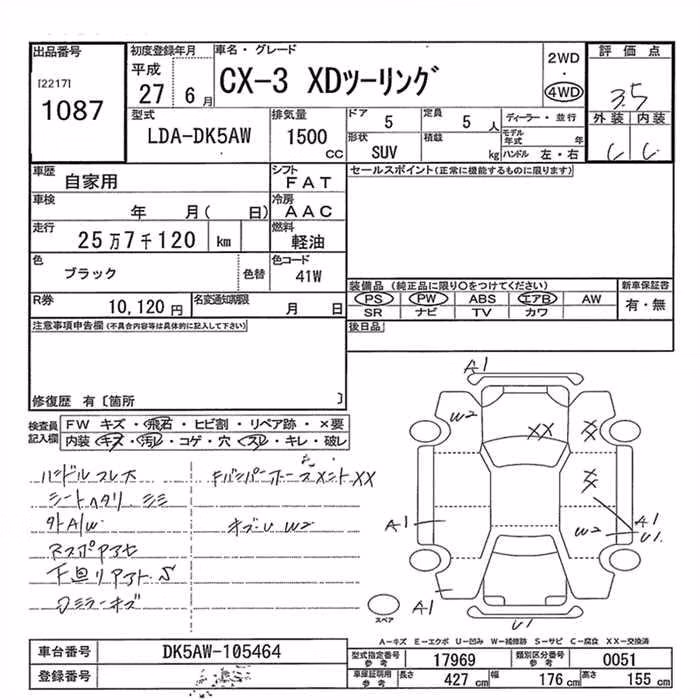 出品番号
[2217]
1087
初度登録年月
平成
27 6月
車名・グレード
CX-3 XDツーリング
2WD
・
4WD
評価点
3.5
外装 内装
C C
型式
LDA-DK5AW
排気量
1500
CC
ドア 5
定員 5 人
形状 SUV
積載 kg
ディーラー・並行
モデル年式 年
ハンドル 左・右
車歴 自家用
シフト FAT
車検 年 月( 日)
冷房 AAC
走行 25万7千120 km
燃料 軽油
色 ブラック
色替
色コード 41W
R券 10,120円
名変通知期限 月 日
セールスポイント(正常に機能するものに限ります)
装備品 (純正品に限り○をつけてください)
PS PW ABS エアB AW
SR ナビ TV カワ
新車保証書
有・無
後日品
注意事項申告欄 (不具合内容等は具体的に記入して下さい)
修復歴 有〔箇所 〕
検査員記入欄
FW キズ・飛石・ヒビ割・リペア跡・×要
内装 キズ・汚レ・コゲ・穴・スレ・キレ・破レ
ハンドルスレ大
シートヘタリ シミ
外A/W
下回リ S
ミラーキズ
キズU W2
A1
W2
XX
XX
XX
A1
W2
A1
U1
A1
U1
スペア
A-キズ E-エクボ U-凹み W-補修跡 S-サビ C-腐食 XX-交換済
車台番号 DK5AW-105464
登録番号
型式指定番号 参考 17969
類別区分番号 参考 0051
車庫証明用 参考 長さ 427cm 幅 176cm 高さ 155cm